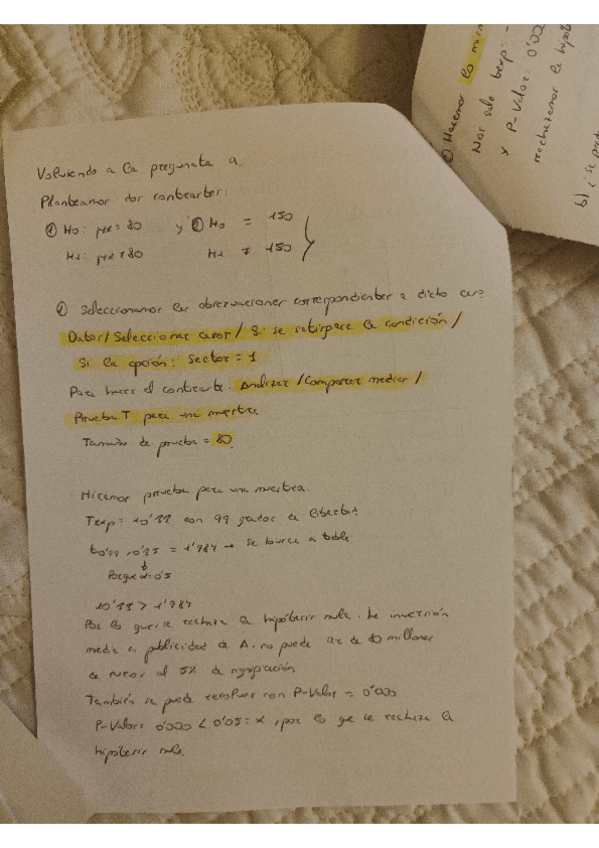 Volviendo a la pregunta a.
Planteamos dos contrastes:
① H0: μx = 80 y ② H0 = 150
H1: μx ≠ 80 H1 ≠ 150
① Seleccionamos las observaciones correspondientes a dicho caso
Datos / Seleccionar casos / Si se satisface la condición /
Si la opción: Sector = 1
Para hacer el contraste: Analizar / Comparar medias /
Prueba T para una muestra
Tamaño de prueba = 80
Hicemos prueba para una muestra.
Texp = 10'33 con 99 grados de libertad
= 1'984 → se busca en tabla
Porque
10'33 > 1'984
Por lo que se rechaza la hipótesis nula. La inversión
media en publicidad de A. no puede ser de 80 millones
de euros al 5% de significación
También se puede resolver con P-Valor = 0'000
P-Valor = 0'000 < 0'05 = α, por lo que se rechaza la
hipótesis nula.
① Hacemos lo mism
Nos sale texp: -
y P-Valor: 0'000
rechazamos la hipót
b) ¿ Se pued